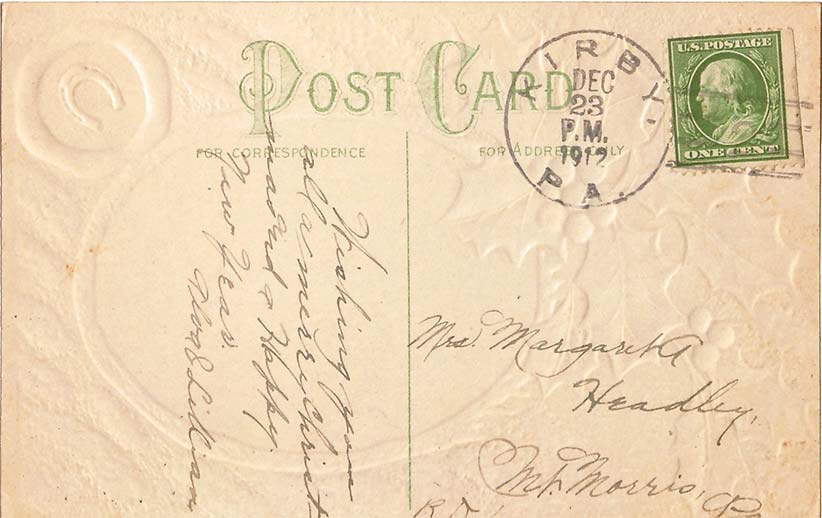 POST CARD
FOR CORRESPONDENCE
FOR ADDRESS ONLY
KIRBY,
DEC
23
P.M.
1912
PA.
U.S. POSTAGE
ONE CENT
Wishing you
all a merry Christ
mas and a Happy
New Year.
& Lillian
Mrs. Margaret A
Headley,
Mt. Morris, Pa